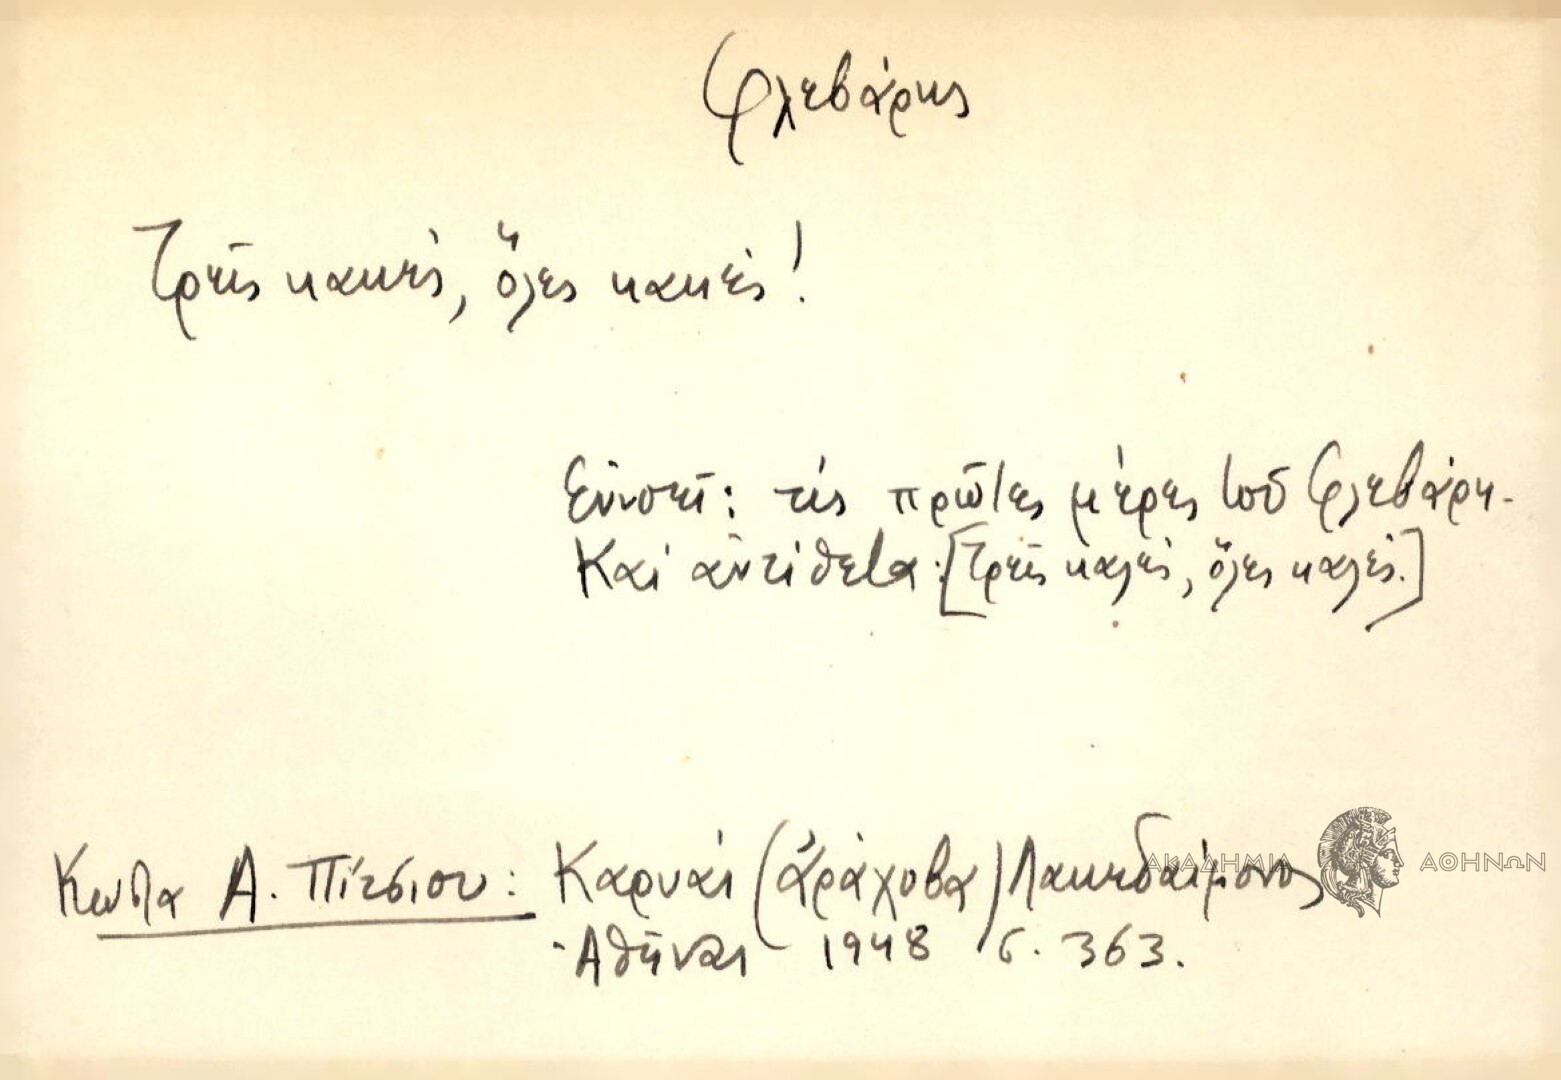 Φλεβάρης
Τρεῖς κακές, ὅλες κακές!
Εὐνοεῖ: τίς πρῶτες μέρες τοῦ Φλεβάρη-
Καί ἀντίθετα: [Τρεῖς καλές, ὅλες καλές.]
Κώστα Α. Πίτσιου: Καρυαί (Ἀράχοβα) Λακεδαίμονος
Ἀθῆναι 1948 σ. 363.
ΑΚΑΔΗΜΙΑ ΑΘΗΝΩΝ